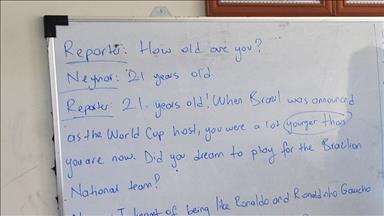 Reporter: How old are you?
Neymar: 21 years old
Reporter: 21 years old! When Brazil was announced
as the World Cup host, you were a lot younger than
you are now. Did you dream to play for the Brazilian
National team?
I of being like Ronaldo and Ronaldinho Gaucho